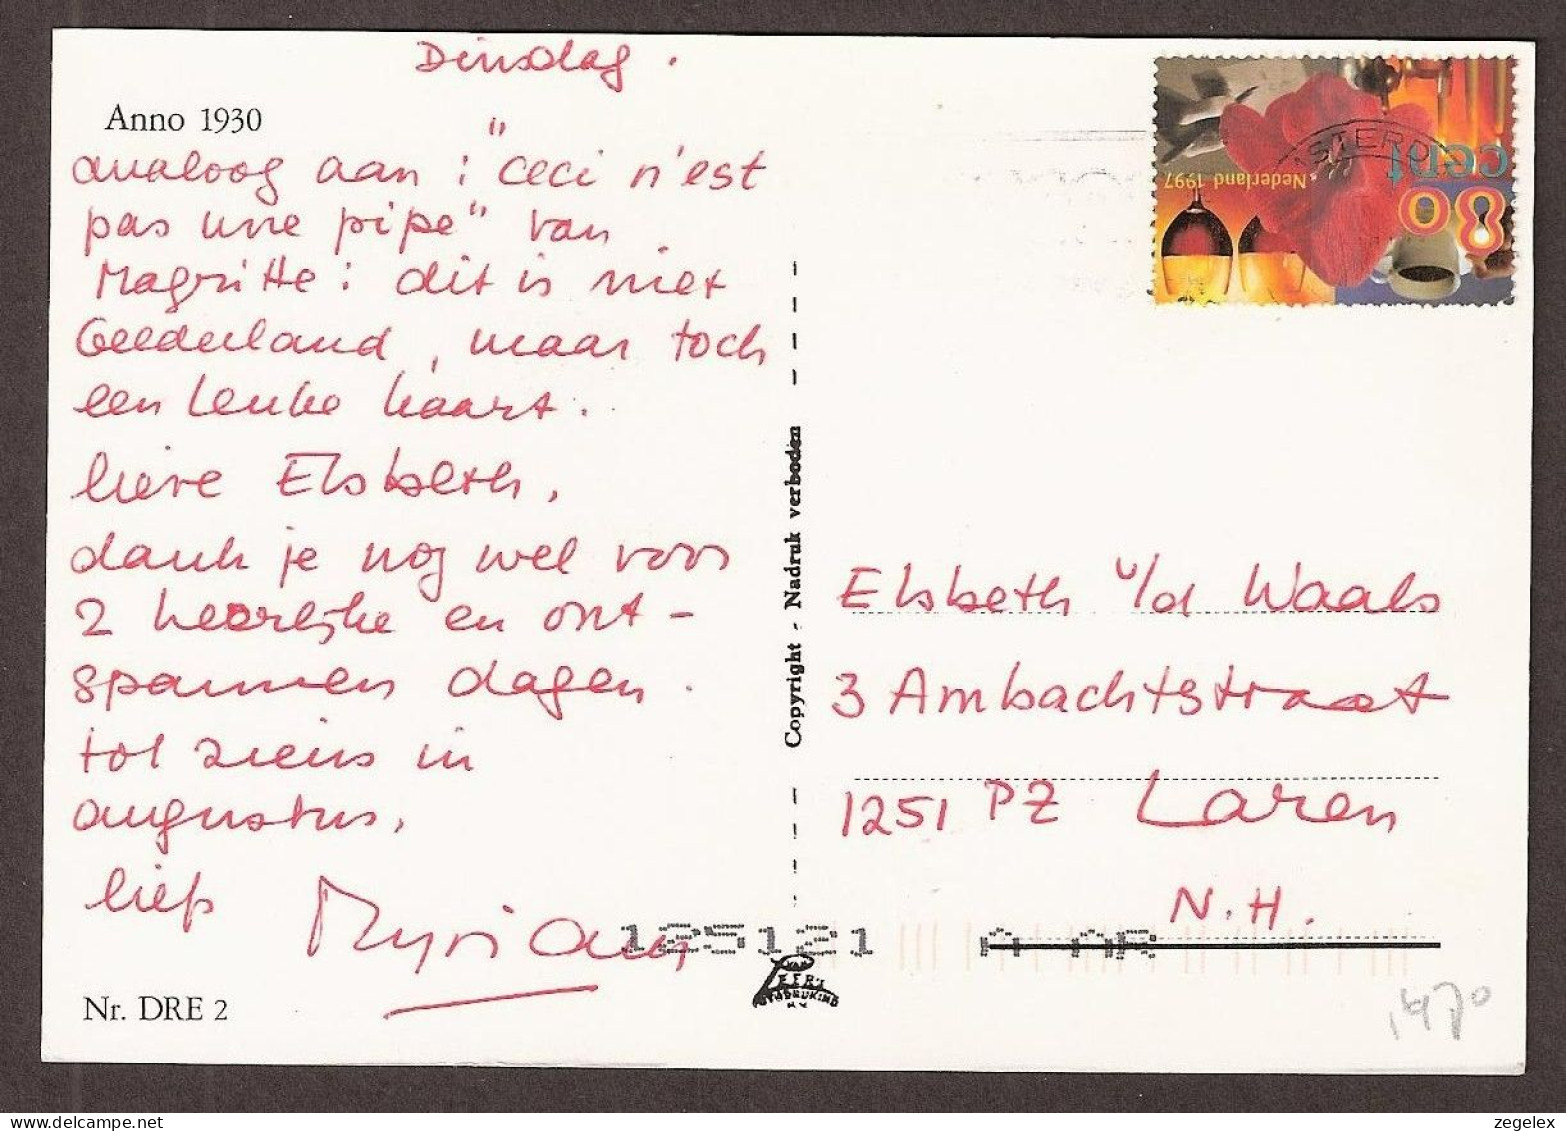 Dinsdag.
Anno 1930
analoog aan: "ceci n'est
pas une pipe" van
Magritte: dit is niet
Gelderland, maar toch
een leuke kaart.
lieve Elsbeth,
dank je nog wel voor
2 heerlijke en ont-
spannen dagen.
tot ziens in
augustus,
liefs
Myriam
Nr. DRE 2
Copyright - Nadruk verboden
80 cent
Nederland 1997
Elsbeth v/d Waals
3 Ambachtstraat
1251 PZ Laren
N.H.
125121
VAN LEER'S